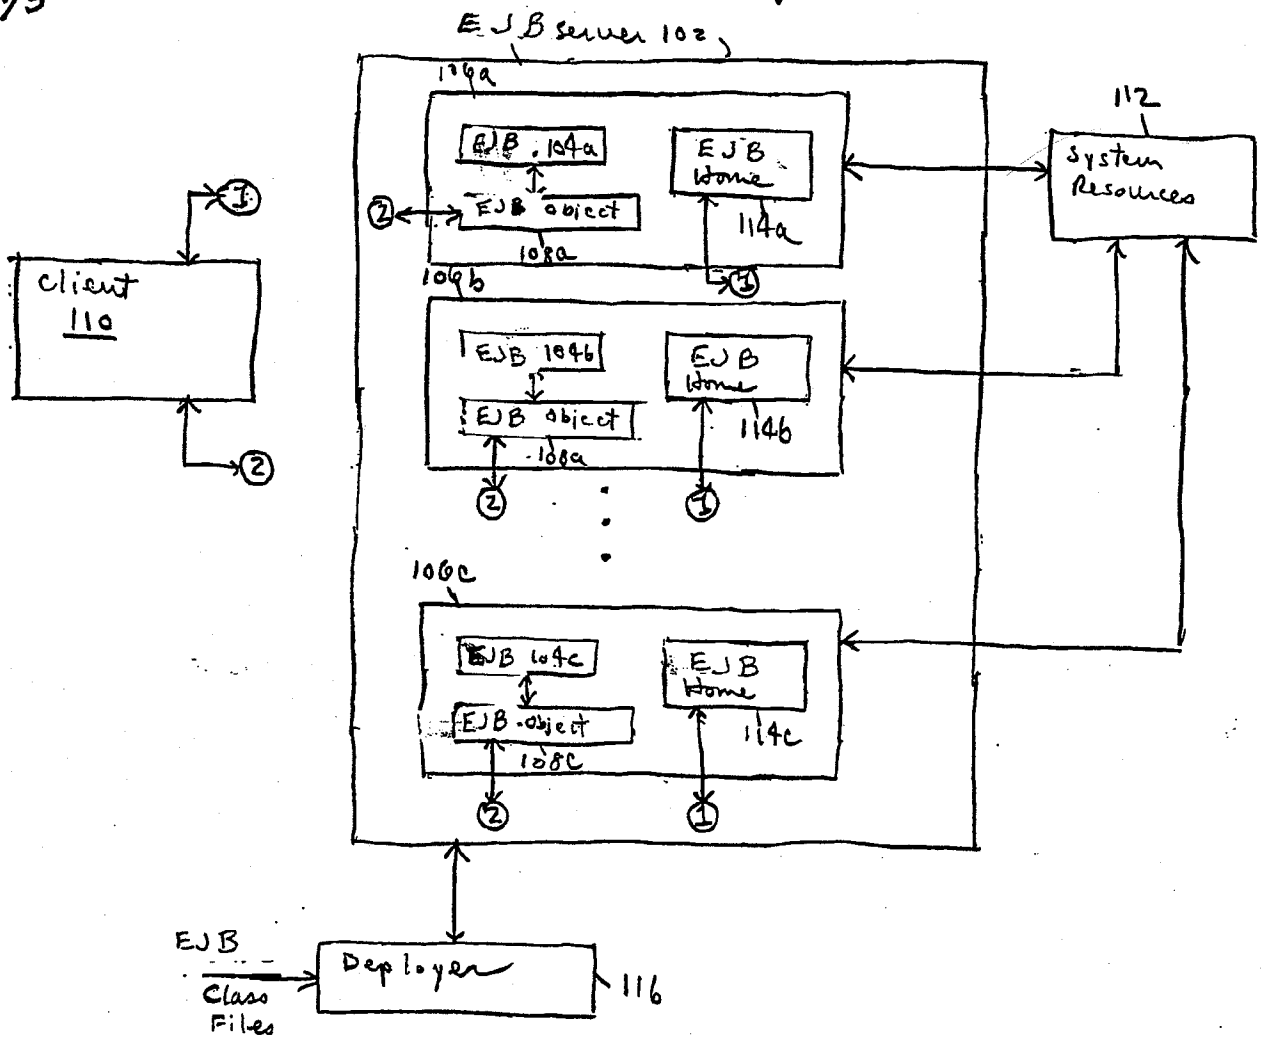 EJB server 102
106a
EJB 104a
EJB
Home
EJB object
108a
114a
112
System
Resources
1
2
1
client
110
2
106b
EJB 104b
EJB
Home
EJB object
108a
114b
2
1
106c
EJB 104c
EJB
Home
EJB object
108c
114c
2
1
EJB
Class
Files
Deployer
116